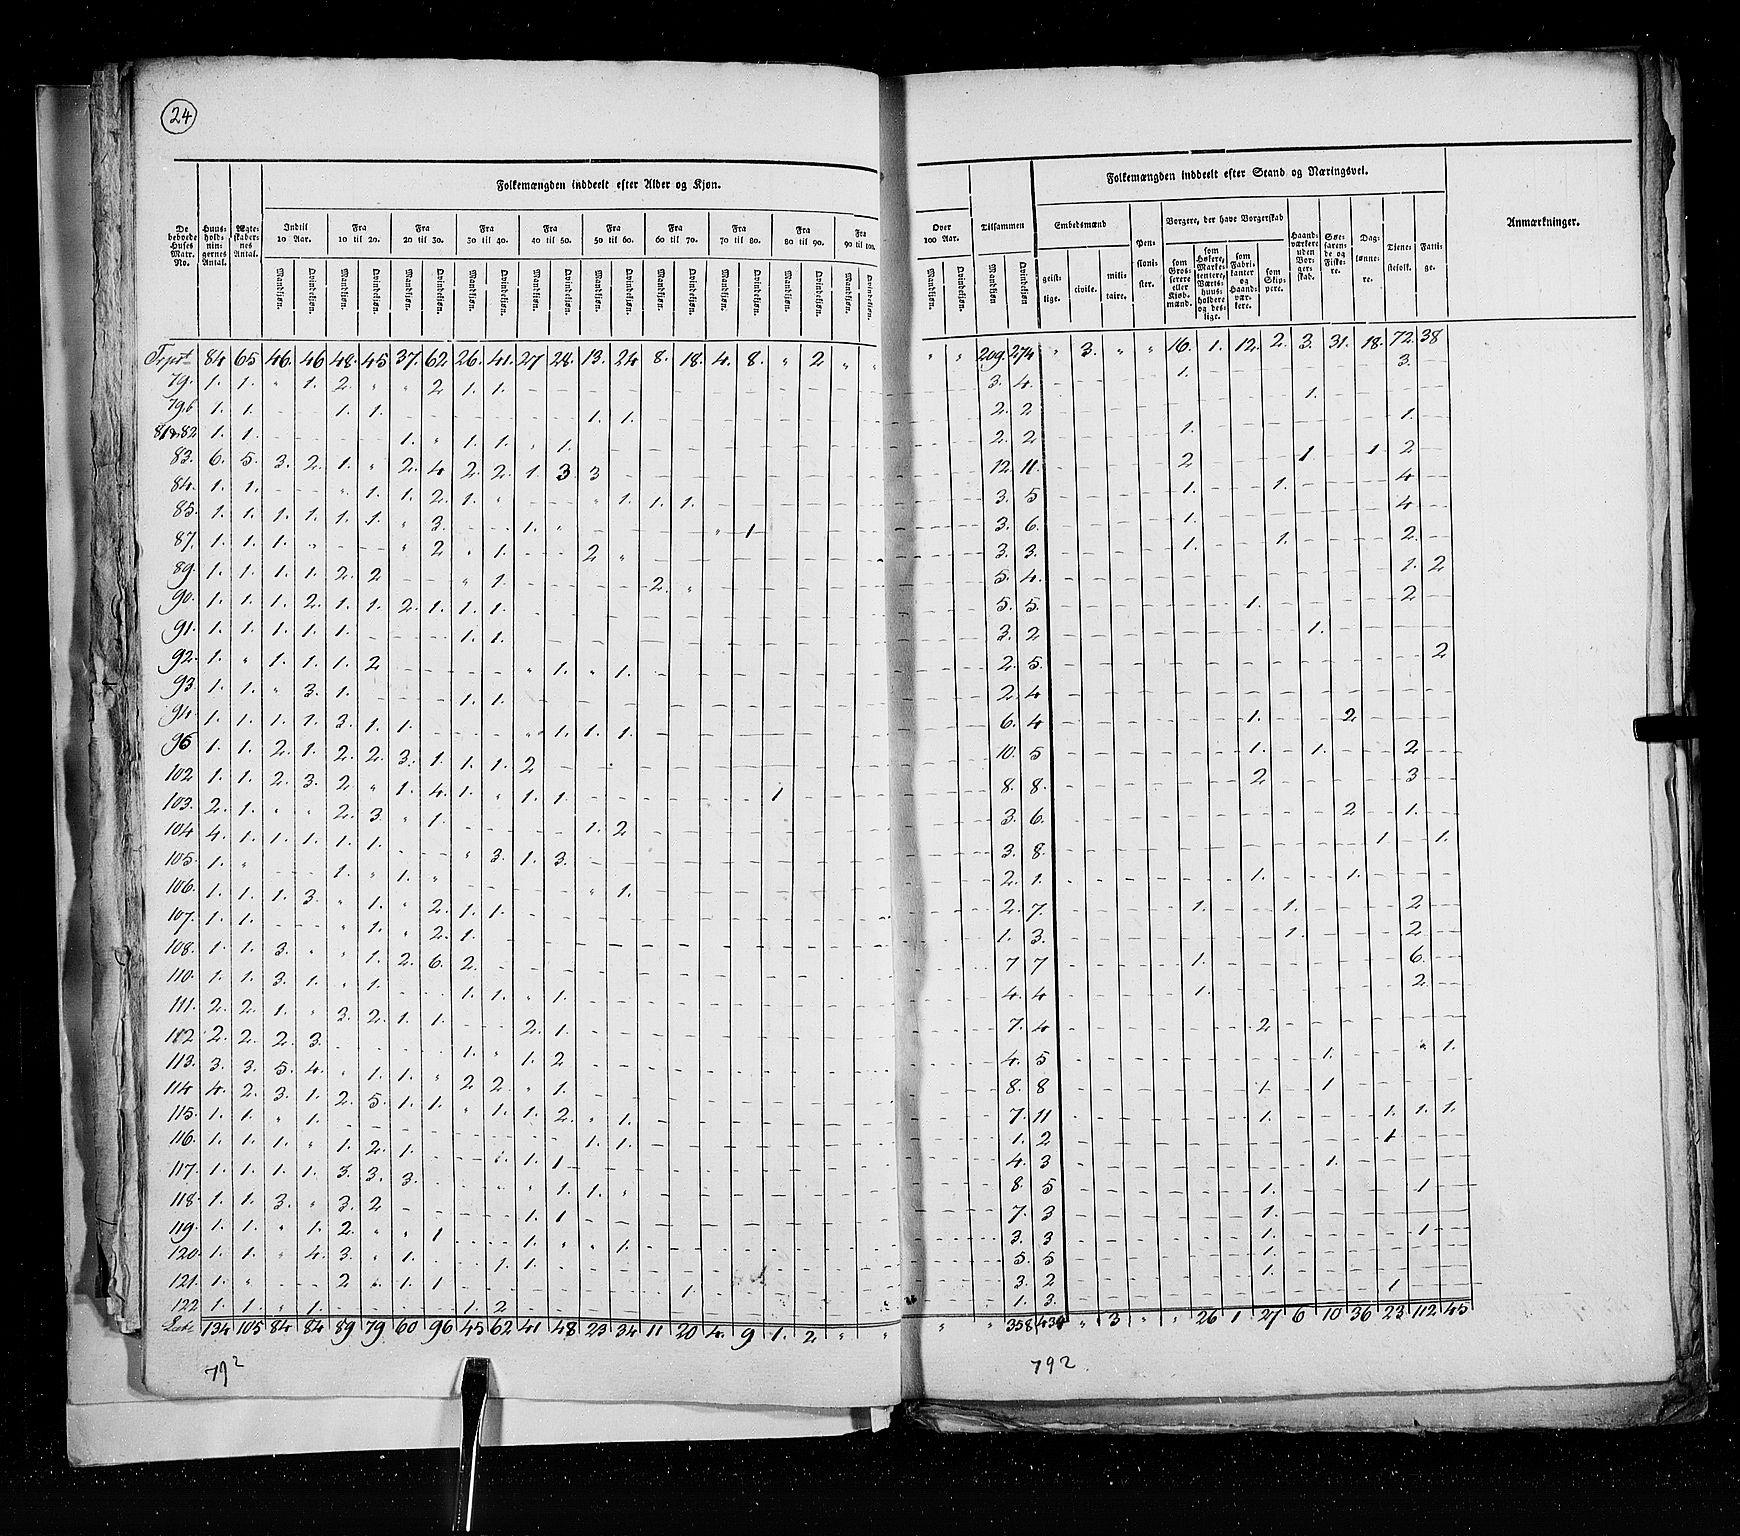 24
Folkemængden inddeelt efter Alder og Kjøn.
Folkemængden inddeelt efter Stand og Næringsvei.
Anmærkninger.
De beboede Huses Matr. No.
Huus-hold-nin-gernes Antal.
Ægte-skaber-nes Antal.
Indtil 10 Aar.
Fra 10 til 20.
Fra 20 til 30.
Fra 30 til 40.
Fra 40 til 50.
Fra 50 til 60.
Fra 60 til 70.
Fra 70 til 80.
Fra 80 til 90.
Fra 90 til 100.
Over 100 Aar.
Tilsammen
Embedsmænd
Pen-sioni-ster.
Borgere, der have Borgerskab
Haand-værkere uden Bor-ger-skab.
Søe-farende og Fiskere.
Dag-lønne-re.
Tjene-stefolk.
Fatti-ge.
Mandkjøn. Qvindekjøn.
geist-lige. civile. mili-taire.
som Gros-serere eller Kjøb-mænd.
som Høkere, Marke-tentere, Værts-huus-holdere og des-lige.
som Fabri-kanter og Haand-vær-kere.
som Skip-pere.
84 65 46. 46 48. 45 37. 62 26. 41. 27 28. 13. 24 8. 18. 4. 8. " 2 " " " " 209. 274 " 3. " " 16. 1. 12. 2. 3. 31. 18. 72. 38
79. 1. 1. " 1. 2. " " 2 1. 1. 3. 4. 1. 3.
79b 1. 1. 1. 1. 1. 1. 2. 2 1.
81&82 1. 1. 1. " 1. 1. " 1. 2. 2 1. 1.
83. 6. 5. 3. 2. 1. " 2. 4 2. 2. 1. 3. 3 12. 11. 2 1. 1. 2
84. 1. 1. " 1. 1. 2. 1. " " 1. 1. 1. 3. 5 1. 1. 4
85. 1. 1. 1. 1. 1. 1. " 3. 1. " " 1 3. 6. 1. 4
87. 1. 1. 1. " " 2 " 1. 2 " 3. 3. 1. 1. 2.
89. 1. 1. 1. 1. 2. 2 " 1. 2. " 5. 4. 1. 2
90. 1. 1. 1. 2. 1. 1. 2. 1. 1. 1. 5. 5. 1. 2
91. 1. 1. 1. 1. 1. 1. 1. 3. 2 1.
92. 1. " 1. 1. 1. 2 " 1. " 1. 2. 5. 2
93. 1. 1. " 3. 1. 1. 1. 2. 4
94. 1. 1. 1. 1. 3. 1. 1. " 1. 1. 1. 6. 4 1. 2
1. 1. 2. 1. 2. 2. 3. 1. 1. 1. 2 10. 5 1. 1. 2
102 1. 1. 2. 3. 2. " 1. 4. 1. " 1. 1. 1 8. 8. 2 3
103. 2. 1. " " 2. 3. " 1. 1. 2 3. 6. 2 1.
104 4. 1. 1. 1. 1. 1. " 3. 1. 3. 3. 8. 1 1.
105. 1. " 1. " 1. " 2. 1. 1. 1.
106. 1. 1. 1. 3. " 1. " 2. 1. 1. " 1. 2. 7. 1. 1. 2
107. 1. 1. " 1. " 2. 1. 1. 3. 1. 2
108. 1. 1. 3. " " 1. 2. 6. 2. 7 7 1. 6.
110. 1. 1. 3. 1. " 1. 1. 1. " 1. 4. 4 1. 2.
111. 2. 2. 1. " 3. 2. 1. 1. 2. 1. 7. 4 2
112 2. 2. 2. 3. 1. " 1. 2 4. 5 1. " 1.
113. 3. 3. 5. 4. " 1. 1. " 2. 2. " 1. 8. 8 1. 1
114 4. 2. 3. 1. 2. 5. 1. 1. " 1. 1. 2. " 1. 7. 11 1. 1. 1. 1.
115. 1. 1. " 1. 1. 1. 1. 2 1.
116. 1. 1. 1. " 1. 2. 1. 1. 1 4. 3 1.
117. 1. 1. 1. 1. 3. 3. 3. " 1. 1. " 8. 5 1. 1
118. 1. 1. 3. " 3. 2 1. 1 7. 3 1.
119. 1. 1. " 1. 2. " " 1 1. " " 1. 3. 3 1. 1
120. 1. 1. " 4. 3. " 1. 1. 1. 5. 5 1.
121. 1. " 2 " 1. 1 1. 3. 2 1. 1
122 1. 1. " 1. 1. 2 1. 3.
134 105 84 84 89 79 60 96 45 62 41 48 23 34 11 20 4. 9 1. 2 " " " " 358 434 " 3 " " 26 1 27 6 10 36 23 112 45
792
792